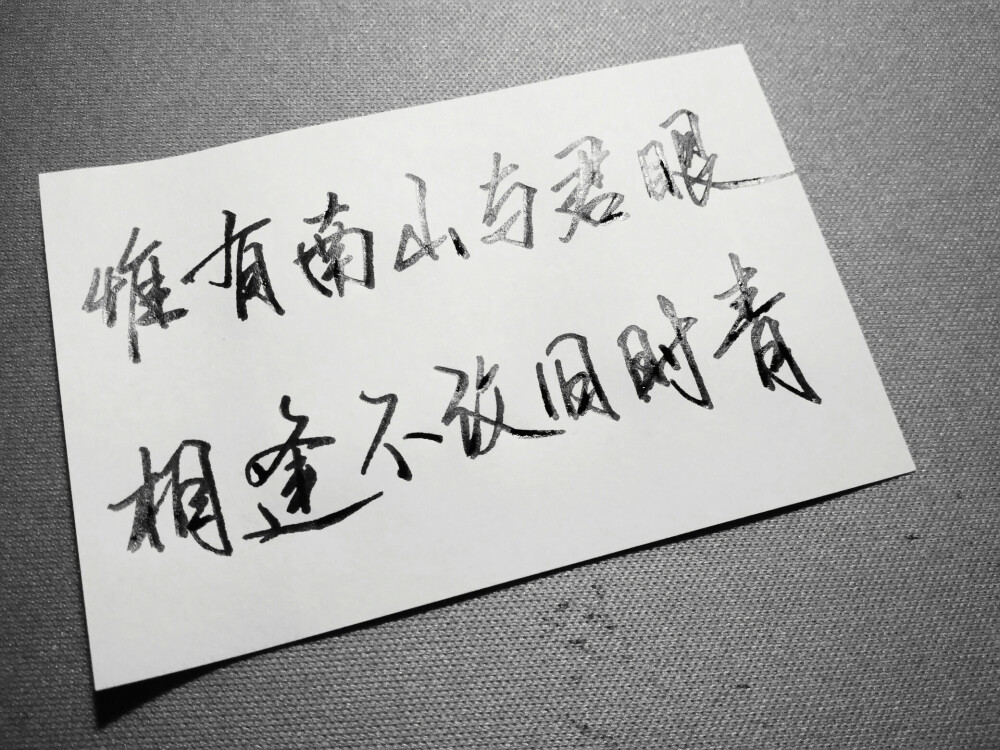 惟有南山与君眼
相逢不改旧时青